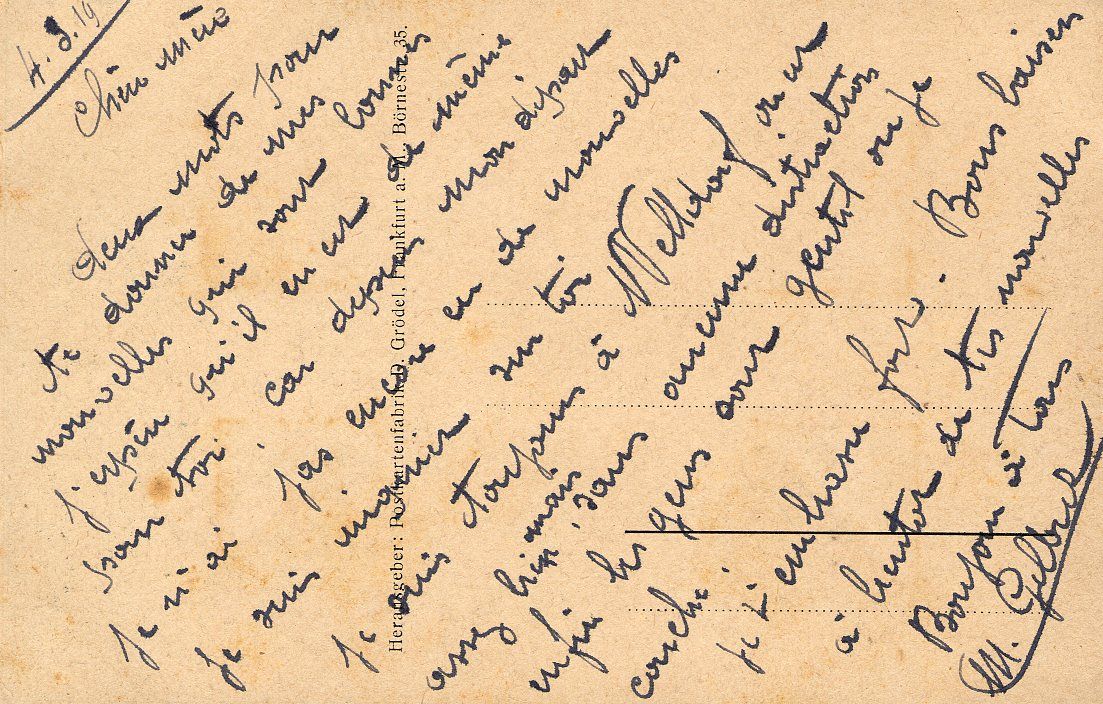 4. 3. 19
Chère mère
deux mots pour
te donner de mes
nouvelles qui sont bonnes
j'espère qu'il en est de même
pour toi. car depuis mon départ
Je n'ai pas encore eu de nouvelles
Je suis inquiet sur toi
Je suis toujours à on est
assez bien, mais sans aucune distraction
enfin les gens sont gentil ou je
couche.
Je t'embrasse fort. Bons baisers
à bientôt de tes nouvelles
Bonjour à tous
M.
Herausgeber: Postkartenfabrik D. Grödel, Frankfurt a. M., Börnestr. 35.